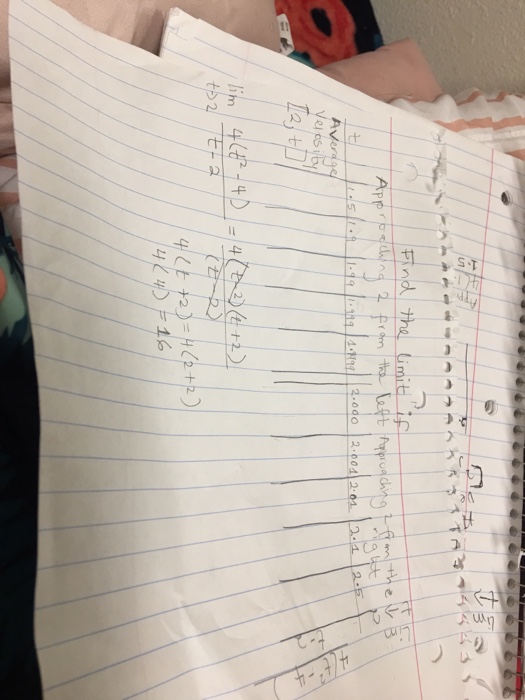 Find the limit if
Approaching 2 from the left Approaching 2 from the right
t 1.5 1.9 1.99 1.999 1.9999 2.000 2.001 2.01 2.1 2.5
Average
Velosity
[2, t]
lim 4(t² - 4) = 4(t-2)(t+2)
t→2 t - 2 (t-2)
4(t+2) = 4(2+2)
4(4) = 16